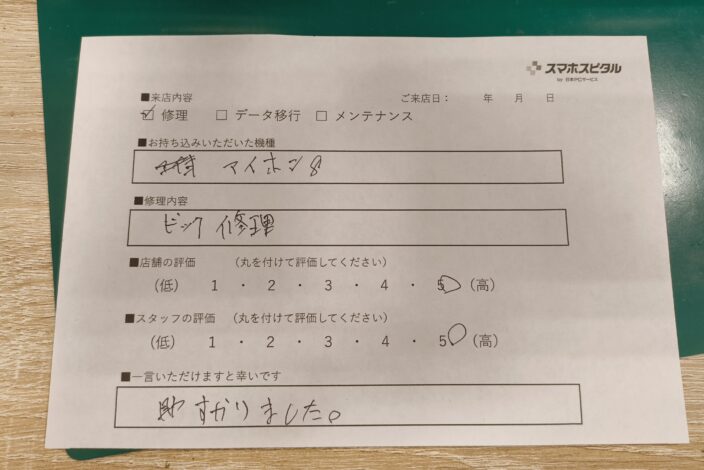 スマホスピタル
by 日本PCサービス
■来店内容 ご来店日： 年 月 日
☑ 修理 □ データ移行 □ メンテナンス
■お持ち込みいただいた機種
マイホン8
■修理内容
ビック修理
■店舗の評価 （丸を付けて評価してください）
（低） 1 ・ 2 ・ 3 ・ 4 ・ 5 （高）
■スタッフの評価 （丸を付けて評価してください）
（低） 1 ・ 2 ・ 3 ・ 4 ・ 5 （高）
■一言いただけますと幸いです
助すかりました。